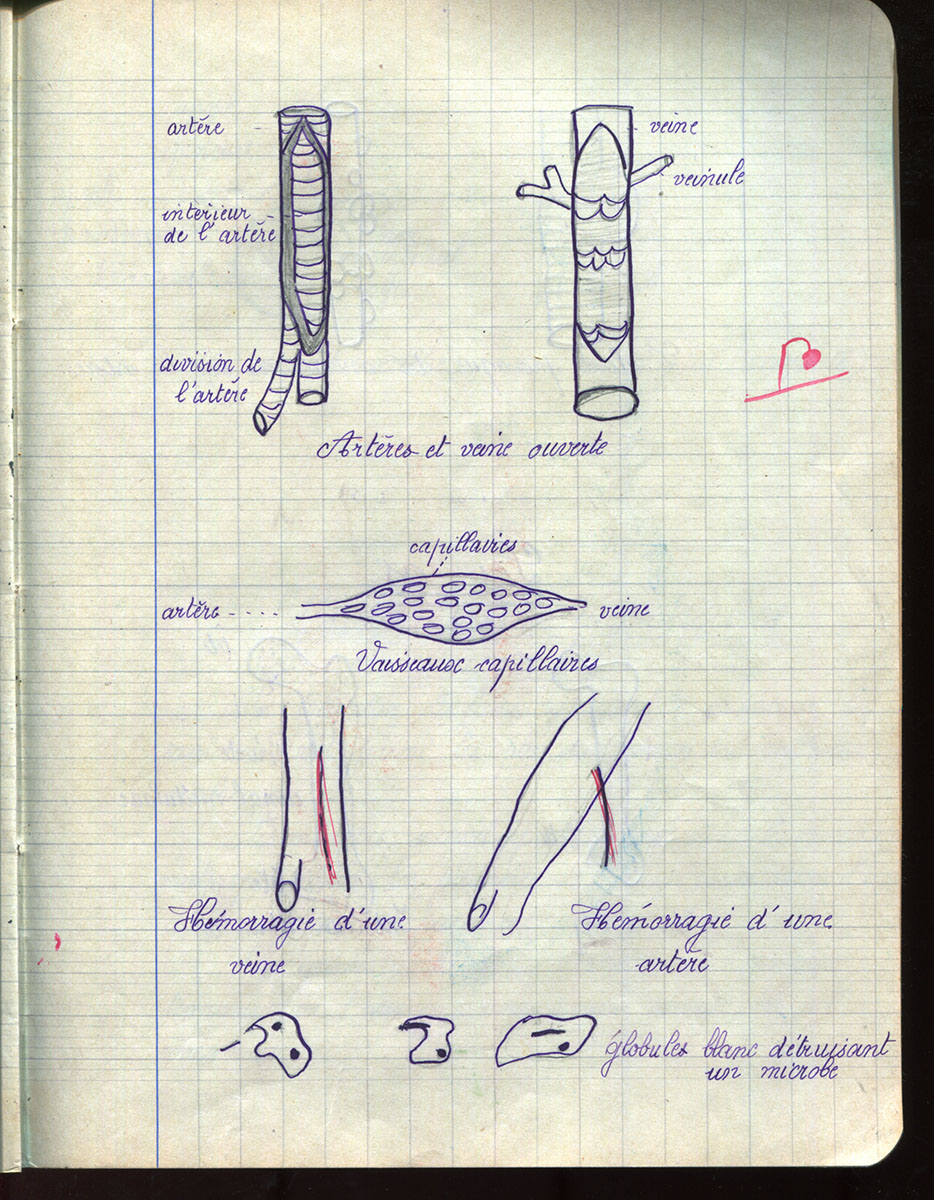 artère
veine
veinule
intérieur
de l'artère
division de
l'artère
Artères et veine ouverte
capillaires
artère
veine
Vaisseaux capillaires
Hémorragie d'une
veine
Hémorragie d'une
artère
globules blanc détruisant
un microbe